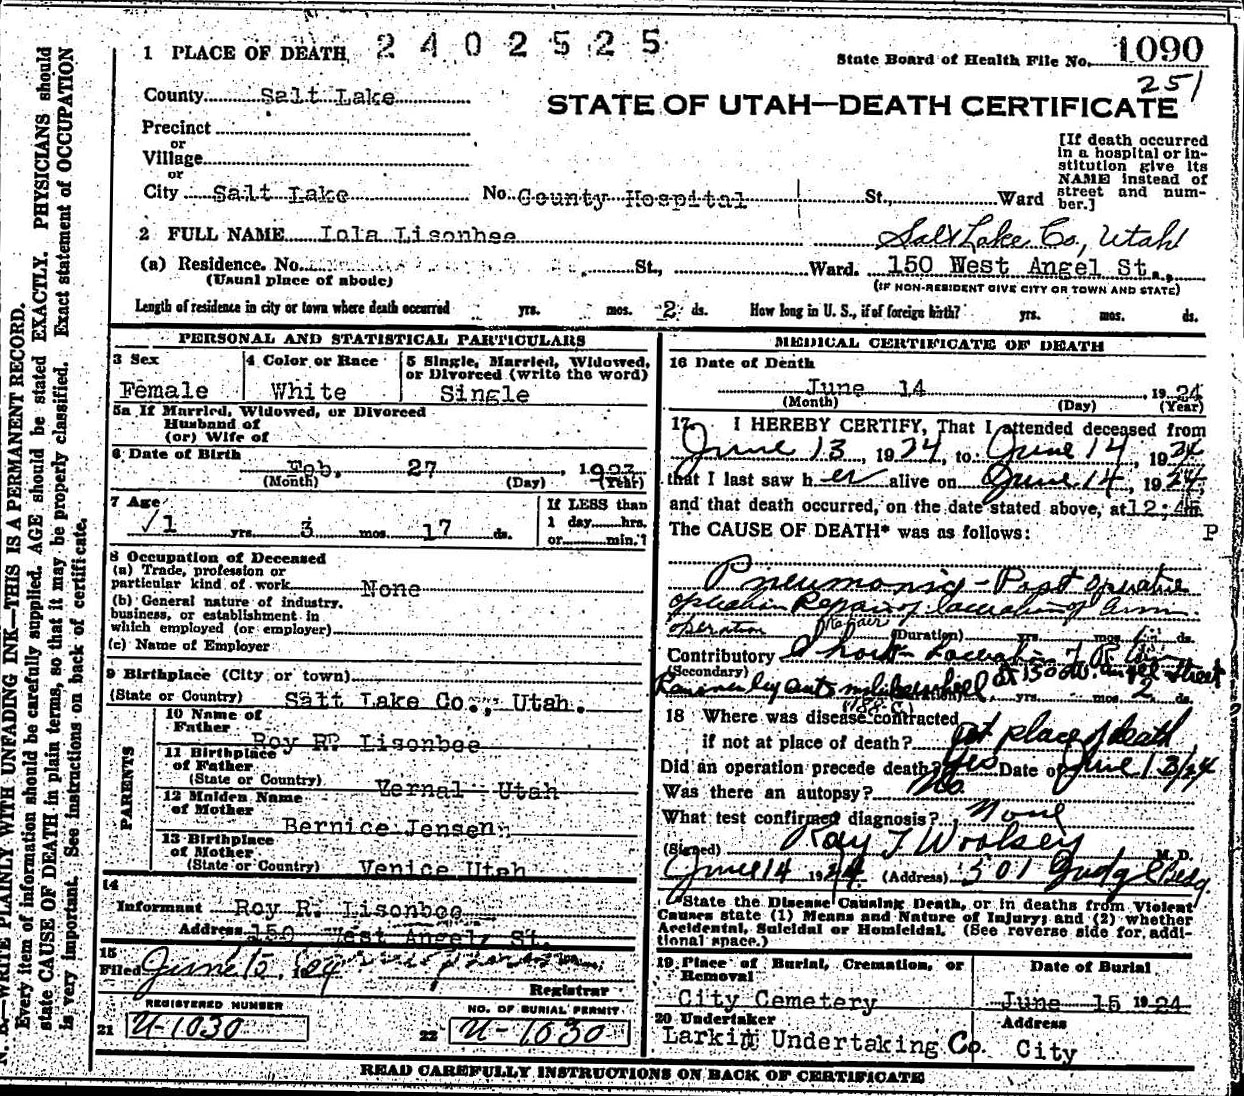 1 PLACE OF DEATH 2402525
State Board of Health File No. 1090
251
County Salt Lake
STATE OF UTAH—DEATH CERTIFICATE
Precinct
or
Village
or
City Salt Lake No. County Hospital St., Ward
[If death occurred
in a hospital or in-
stitution give its
NAME instead of
street and num-
ber.]
2 FULL NAME Iola Lisonbee Salt Lake Co., Utah
(a) Residence. No. St., Ward. 150 West Angel St.,
(Usual place of abode) (IF NON-RESIDENT GIVE CITY OR TOWN AND STATE)
Length of residence in city or town where death occurred yrs. mos. 2 ds. How long in U. S., if of foreign birth? yrs. mos. ds.
PERSONAL AND STATISTICAL PARTICULARS
3 Sex
Female
4 Color or Race
White
5 Single, Married, Widowed,
or Divorced (write the word)
Single
5a If Married, Widowed, or Divorced
Husband of
(or) Wife of
6 Date of Birth
Feb. 27, 1923
(Month) (Day) (Year)
7 Age
1 yrs. 3 mos. 17 ds.
If LESS than
1 day hrs.
or min.?
8 Occupation of Deceased
(a) Trade, profession or
particular kind of work None
(b) General nature of industry,
business, or establishment in
which employed (or employer)
(c) Name of Employer
9 Birthplace (City or town)
(State or Country) Salt Lake Co., Utah.
PARENTS
10 Name of
Father Roy R. Lisonbee
11 Birthplace
of Father
(State or Country) Vernal Utah
12 Maiden Name
of Mother
Bernice Jensen
13 Birthplace
of Mother
(State or Country) Venice Utah
14
Informant Roy R. Lisonbee
Address 150 West Angel St.
15
Filed June 15
Registrar
REGISTERED NUMBER
21 U-1030
NO. OF BURIAL PERMIT
22 U-1030
MEDICAL CERTIFICATE OF DEATH
16 Date of Death
June 14, 1924
(Month) (Day) (Year)
17. I HEREBY CERTIFY, That I attended deceased from
June 13, 1924, to June 14, 1924
that I last saw her alive on June 14, 1924
and that death occurred, on the date stated above, at 12:45 m.
P
The CAUSE OF DEATH* was as follows:
Pneumonia - Post operative
operation Repair of laceration of arm
operation repair
(Duration) yrs. mos. ds.
Contributory Shock - Laceration
(Secondary) at 150 W. Angel Street
Run over by automobile yrs. mos. 2 ds.
(188 C)
18 Where was disease contracted
if not at place of death? at place of death
Did an operation precede death? Yes Date of June 13/24
Was there an autopsy? No.
What test confirmed diagnosis? None
(Signed) Ray T Woolsey M. D.
June 14 1924 (Address) 501 Judge Bldg.
*State the Disease Causing Death, or in deaths from Violent
Causes state (1) Means and Nature of Injury; and (2) whether
Accidental, Suicidal or Homicidal. (See reverse side for addi-
tional space.)
19 Place of Burial, Cremation, or
Removal
City Cemetery
Date of Burial
June 15 1924
20 Undertaker
Larkin Undertaking Co.
Address
City
READ CAREFULLY INSTRUCTIONS ON BACK OF CERTIFICATE
N. B.—WRITE PLAINLY WITH UNFADING INK—THIS IS A PERMANENT RECORD.
Every item of information should be carefully supplied. AGE should be stated EXACTLY. PHYSICIANS should
state CAUSE OF DEATH in plain terms, so that it may be properly classified. Exact statement of OCCUPATION
is very important. See instructions on back of certificate.